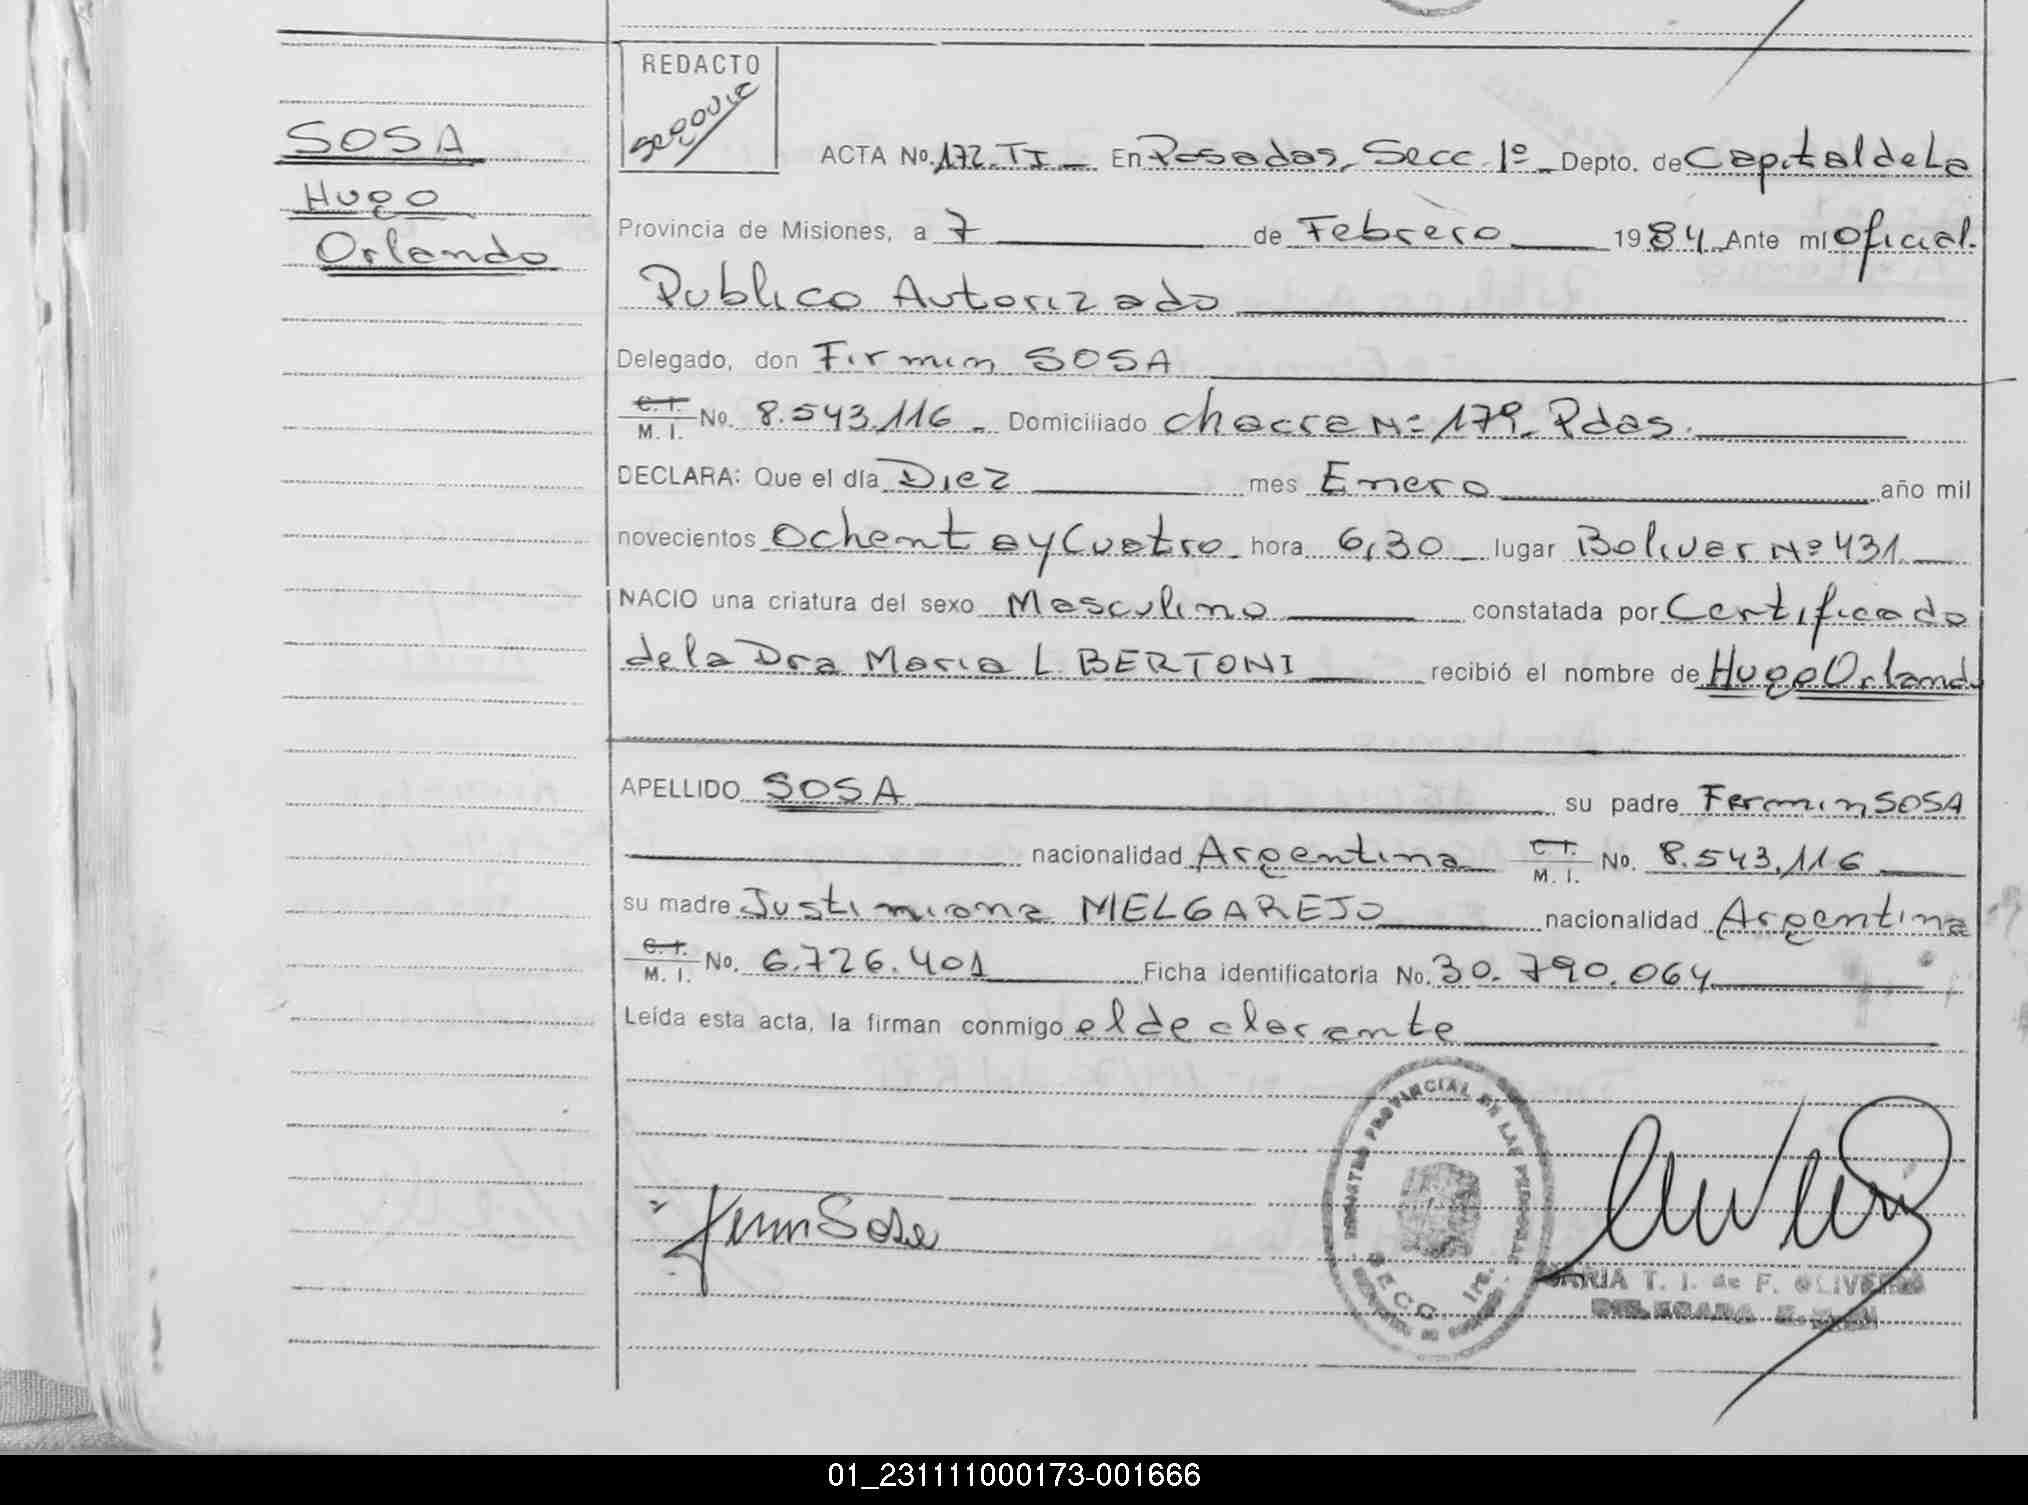 REDACTO
SOSA
Hugo
Orlando
ACTA No. 172. TI En Posadas, Secc. 1º Depto. de Capital de La
Provincia de Misiones, a 7 de Febrero 1984 Ante mí oficial.
Publico Autorizado
Delegado, don Firmin SOSA
C. I. M. I. No. 8.543.116 Domiciliado chacra Nº 179. Pdas.
DECLARA: Que el día Diez mes Enero año mil
novecientos Ochenta y Cuatro hora 6,30 lugar Bolivar Nº 431.
NACIO una criatura del sexo Masculino constatada por Certificado
de la Dra Maria L BERTONI recibió el nombre de Hugo Orlando
APELLIDO SOSA su padre Fermin SOSA
nacionalidad Argentina C. I. M. I. No. 8.543.116
su madre Justiniana MELGAREJO nacionalidad Argentina
C. I. M. I. No. 6.726.401 Ficha identificatoria No. 30.790.064
Leída esta acta, la firman conmigo el declarante
REGISTRO PROVINCIAL DE LAS PERSONAS
SECC. 1ra.
Fermin Sosa
MARIA T. I. de F. OLIVEIRA
01_231111000173-001666